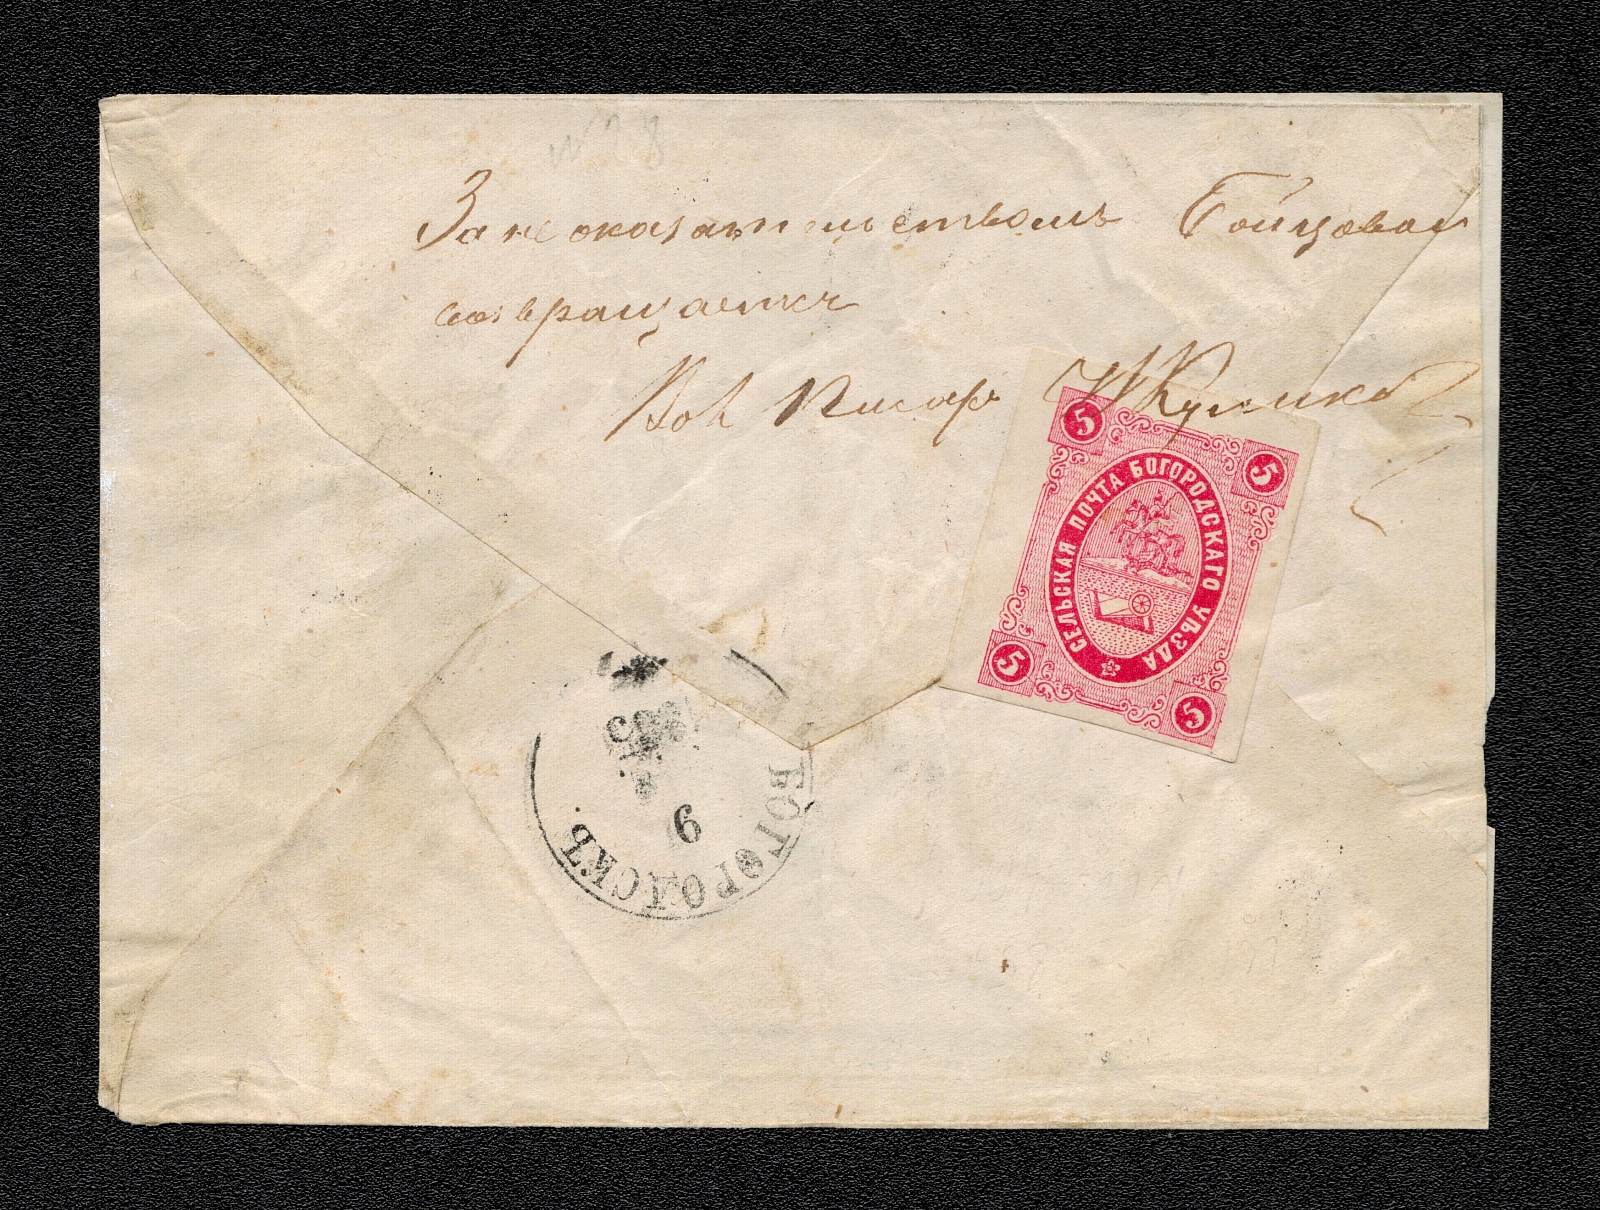 № 28
За неоказательствомъ Гойцовой
возвращается
Вол Писарь
5
5
СЕЛЬСКАЯ ПОЧТА БОГОРОДСКАГО УѢЗДА
5
5
БОГОРОДСКЪ.
6